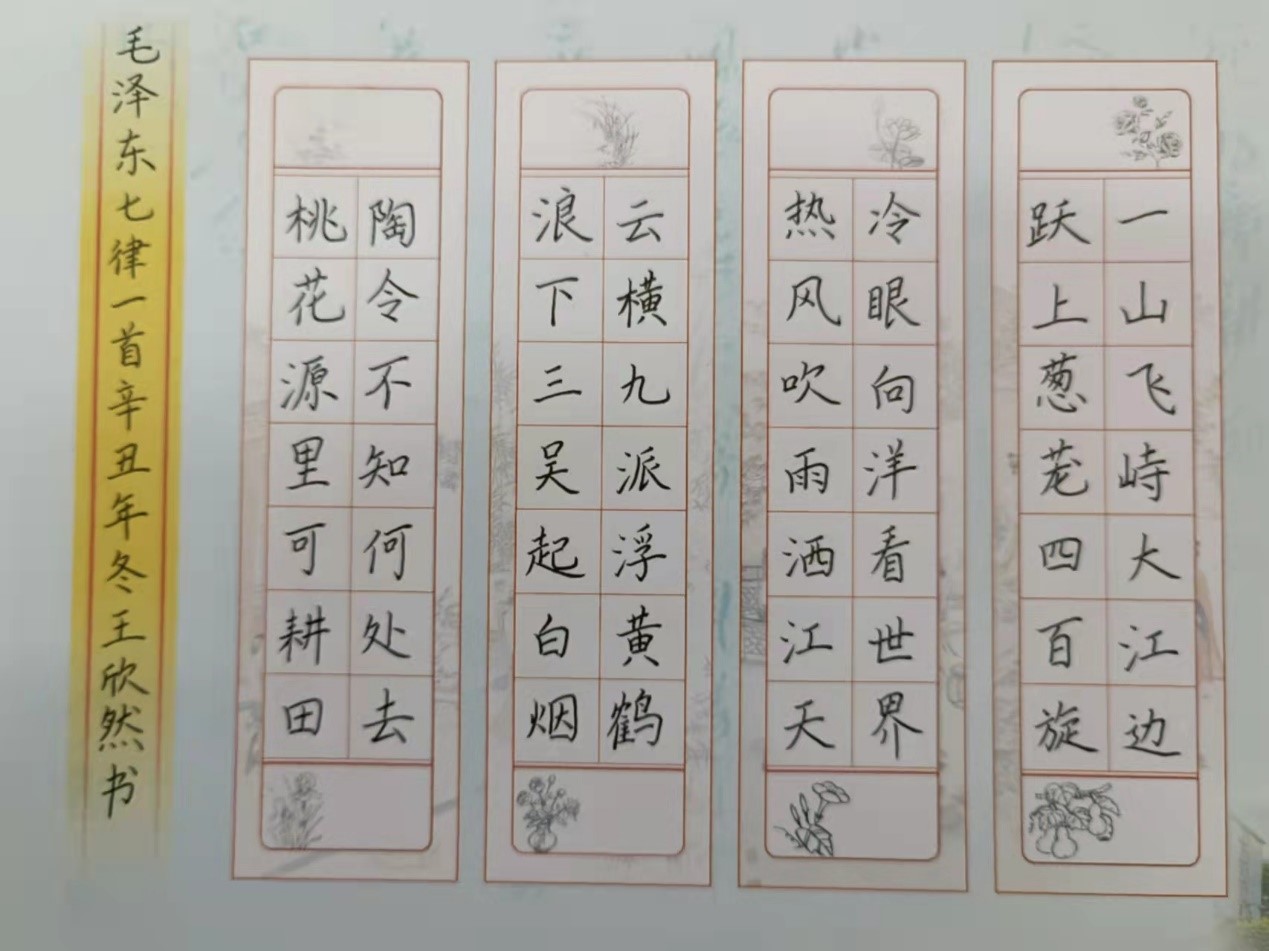 一山飞峙大江边
跃上葱茏四百旋
冷眼向洋看世界
热风吹雨洒江天
云横九派浮黄鹤
浪下三吴起白烟
陶令不知何处去
桃花源里可耕田
毛泽东七律一首辛丑年冬王欣然书